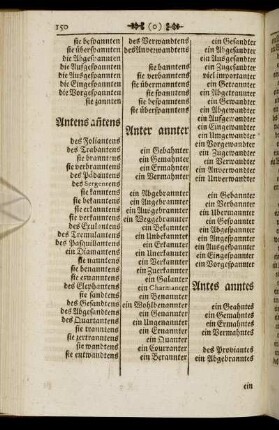 150
(o)
sie bespannten
sie überspannten
die Abgespannten
die Aufgespannten
die Ausgespannten
die Eingespannten
die Vorgespannten
sie gannten
Antens añtens
des Foliantens
des Trabantens
sie branntens
sie verbranntens
des Pädantens
des Sergentens
sie kanntens
sie bekanntens
sie erkanntens
sie verkanntens
des Exulantens
des Tremulantens
des Pasquillantens
ein Diamantens
sie nanntens
sie benanntens
sie ernanntens
des Elephantens
sie sandtens
des Gesandtens
des Abgesandtens
des Quartantens
sie tranntens
sie zertranntens
sie wandtens
sie entwandtens
des Verwandtens
des Anverwandtens
sie banntens
sie verbanntens
sie übermanntens
sie spanntens
sie bespanntens
sie überspanntens
Anter annter
ein Gebahnter
ein Gemahnter
ein Ermahnter
ein Vermahnter
ein Abgebrannter
ein Angebrannter
ein Ausgebrannter
ein Weggebrannter
ein Bekannter
ein Unbekannter
ein Erkannter
ein Unerkannter
ein Verkannter
ein Zuerkannter
ein Galanter
ein Charmanter
ein Benannter
ein Wohlbenannter
ein Genannter
ein Ungenannter
ein Ernannter
ein Quanter
ein Couranter
ein Berannter
ein Gesandter
ein Abgesandter
ein Ausgesandter
ein Zugesandter
viel importanter
ein Getrannter
ein Abgetrannter
ein Gewandter
ein Abgewandter
ein Aufgewandter
ein Eingewandter
ein Umgewandter
ein Vorgewandter
ein Zugewandter
ein Verwandter
ein Anverwandter
ein Unverwandter
ein Gebannter
ein Verbannter
ein Übermannter
ein Gespannter
ein Abgespannter
ein Angespannter
ein Ausgespannter
ein Eingespannter
ein Vorgespannter
Antes anntes
ein Geahntes
ein Gemahntes
ein Ermahntes
ein Vermahntes
des Proviantes
ein Abgebranntes
ein